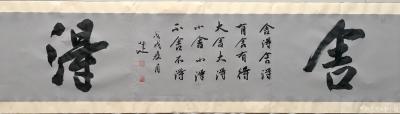 舍
舍得舍得
有舍有得
大舍大得
小舍小得
不舍不得
戊戌夏月
得